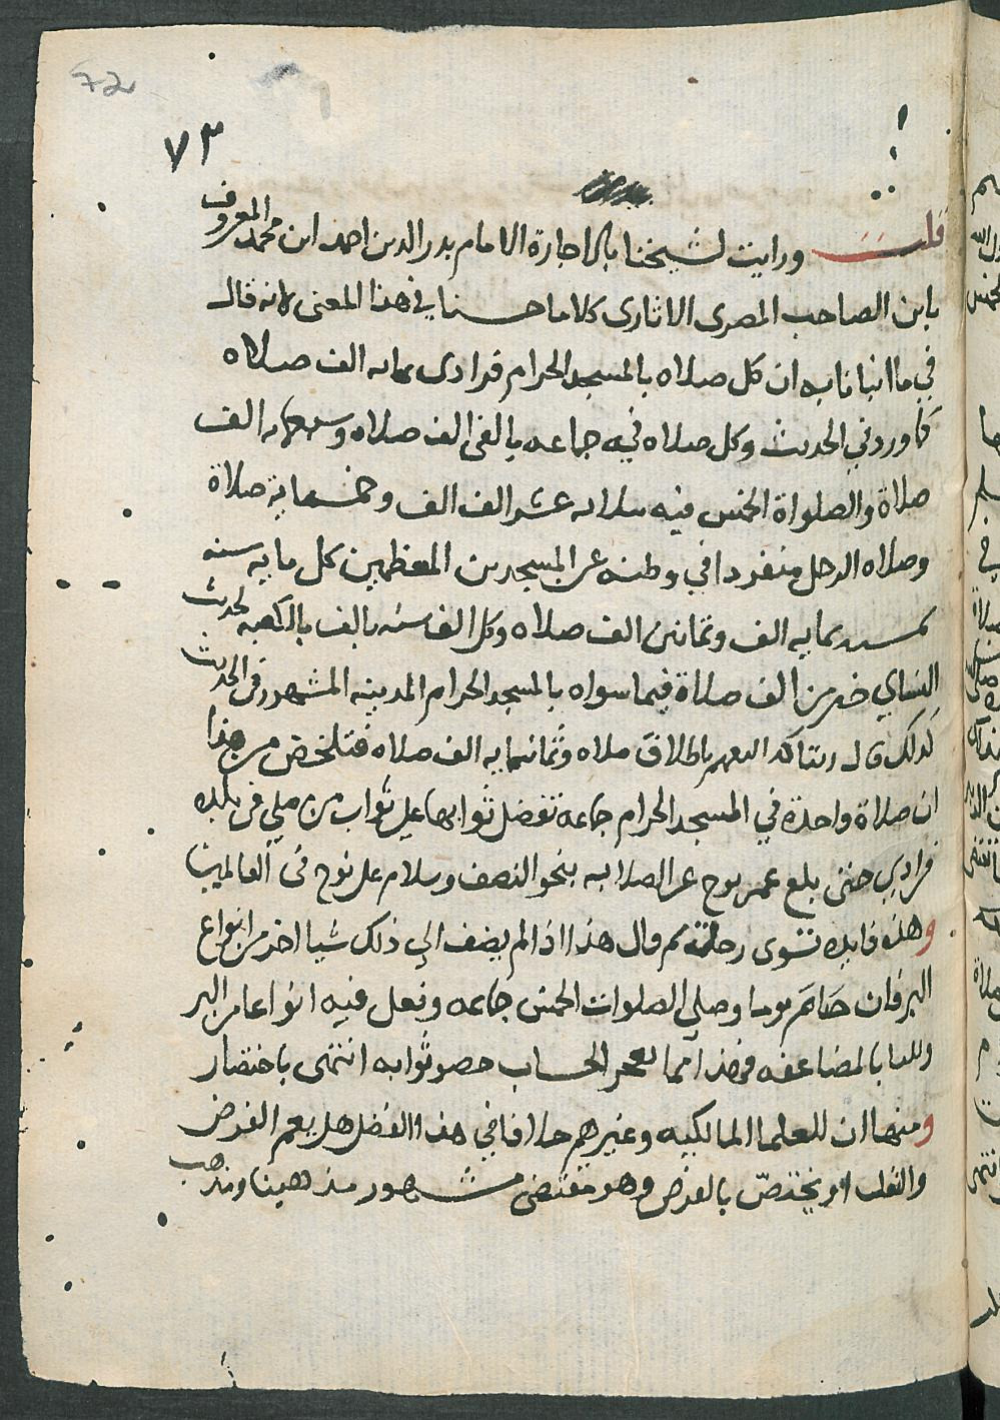 72
٧٣
قلت ورايت لشيخنا بالاجازة الامام بدر الدين احمد ابن محمد المعروف
بابن الصاحب المصرى الاثارى كلاما حسنا في هذا المعنى لانه قال
في ما انبانا به ان كل صلاه بالمسجد الحرام فرادى بمايه الف صلاه
كما ورد في الحديث وكل صلاه فيه جماعه بالفى الف صلاه وسبعمايه الف
صلاة والصلواة الخمس فيه بثلاثه عشر الف الف وخمسماية صلاة
وصلاه الرجل منفردا في وطنه غير المسجدين المعظمين كل مايه سنه
شمسيه بمايه الف وثمانين الف صلاه وكل الف سنه بالف بالكعبه لحديث
النساي خير من الف صلاة فيما سواه بالمسجد الحرام المدينه المشهور في الحديث
كذلك قال وثمانمايه الف صلاه فتلخص من هذا
ان صلاة واحدة في المسجد الحرام جماعه تفضل ثوابها على ثواب من صلي في بلده
فرادي حتى بلغ عمر نوح عليه الصلا بنحو الضعف وسلام على نوح فى العالمين
وهذه فايده تسوى رحلة ثم قال هذا اذا لم يضف الي ذلك شيا اخر من انواع
البر فان صَامَ يوما وصلي الصلوات الخمس جماعه وفعل فيه انواعا من البر
وقلنا بالمضاعفه فهذا مما يعجز الحساب حصر ثوابه انتهى باختصار
ومنها ان للعلما المالكيه وغيرهم خلافا في هذا الفضل هل يعم الفرض
والنفل او يختصّ بالفرض وهو مقتضى مشهور مذهبنا ومذهب